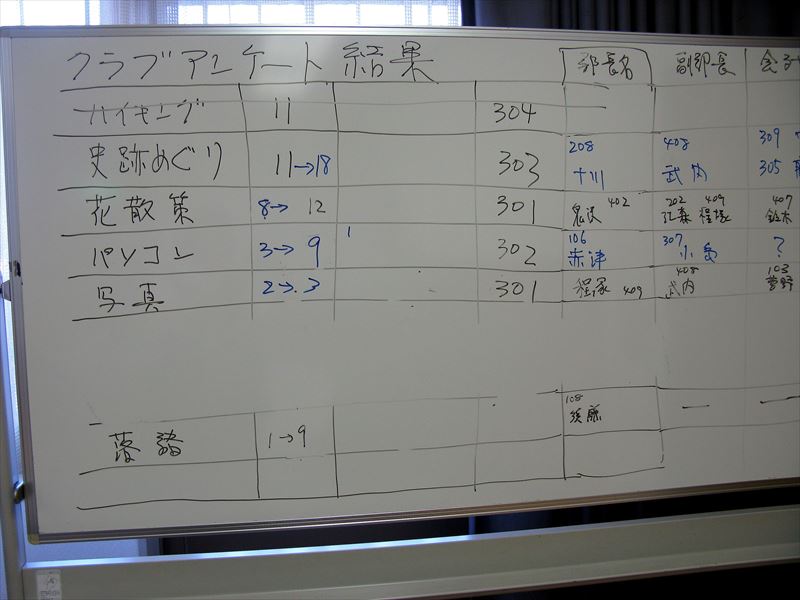 クラブアンケート 結果 部長名 副部長 会
ハイキング 11 304 —
史跡めぐり 11→18 303 208 十川 408 武内 309 305
花散策 8→12 301 402 202 江森 409 程塚 407 鈴木
パソコン 3→9 302 106 赤津 307 小島 ?
写真 2→3 301 程塚 409 408 武内 103 菅野
落語 1→9 108 須藤 — —